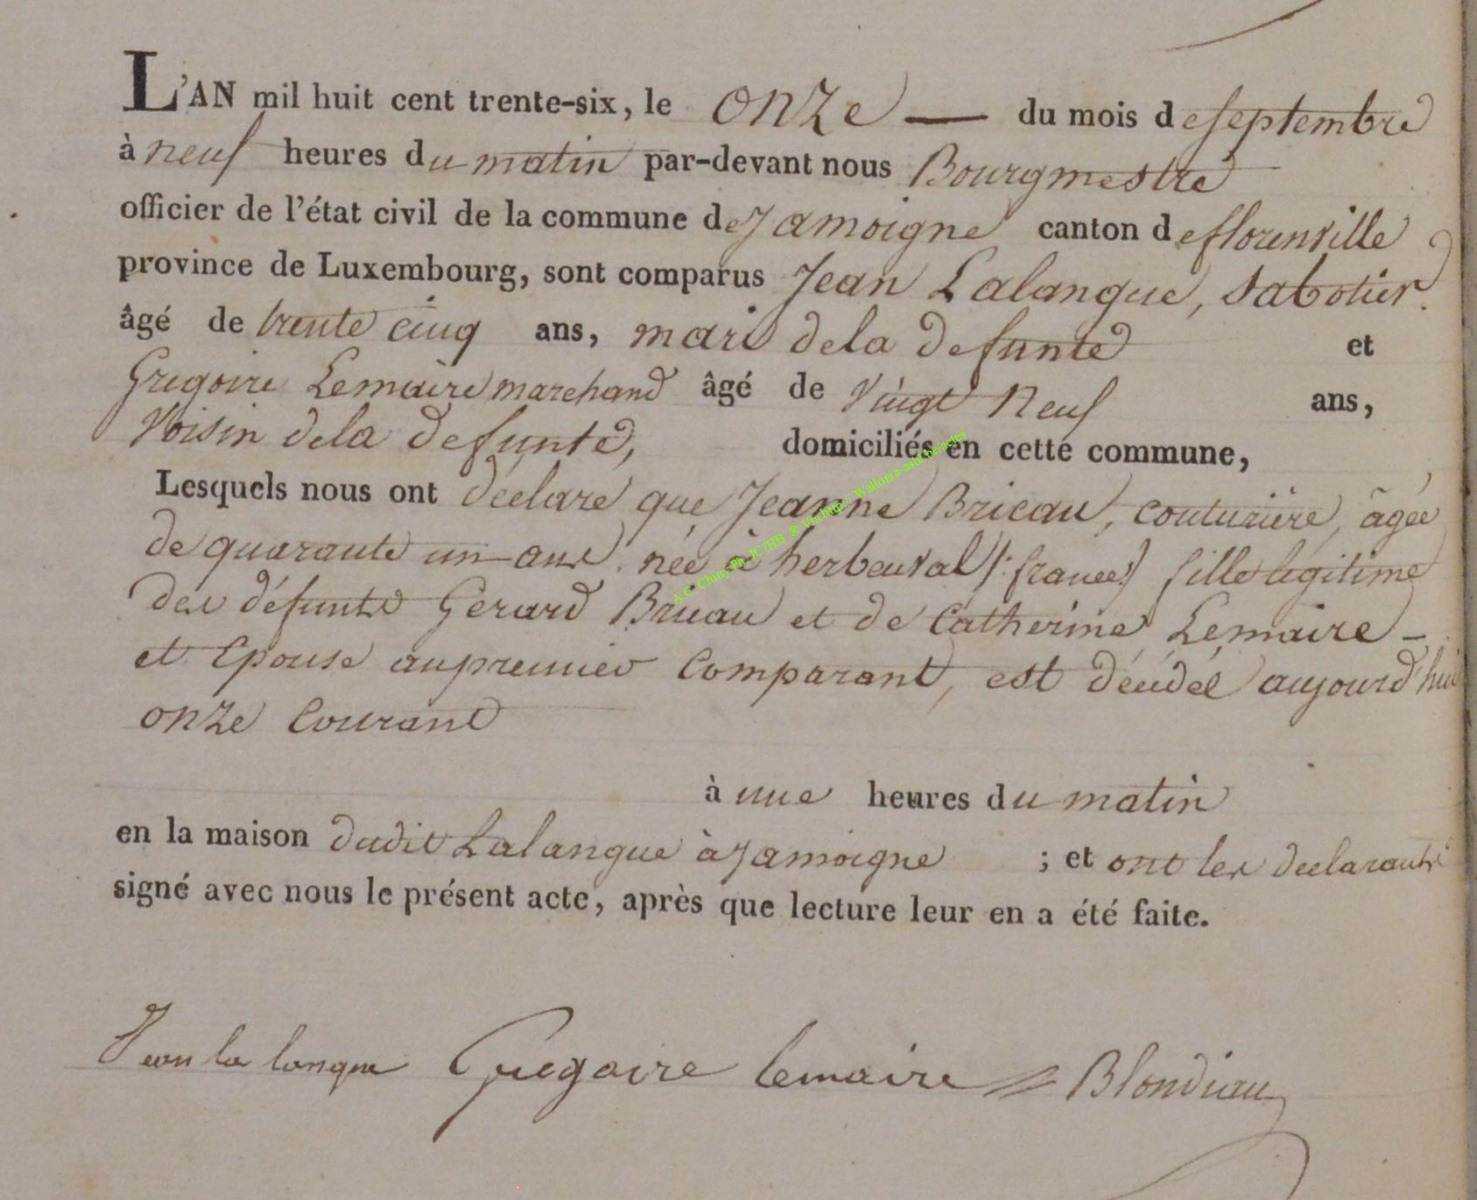 L'AN mil huit cent trente-six, le onze — du mois de septembre
à neuf heures du matin par-devant nous Bourgmestre
officier de l'état civil de la commune de Jamoigne canton de florenville
province de Luxembourg, sont comparus Jean Lalangue, sabotier
âgé de trente cinq ans, mari de la defunte et
Gregoire Lemaire marchand âgé de vingt neuf ans,
voisin de la defunte, domiciliés en cette commune,
Lesquels nous ont déclaré que Jeanne Bricau, couturière, âgée
de quarante un ans née à herbeuval /: france :/ fille legitime
des défunts Gerard Bricau et de Catherine Lemaire –
et Epouse au premier Comparant, est décédée aujourd'hui
onze Courant
à une heures du matin
en la maison dudit Lalangue à Jamoigne ; et ont les declarants
signé avec nous le présent acte, après que lecture leur en a été faite.
Jean la langue Gregoire lemaire Blondiau